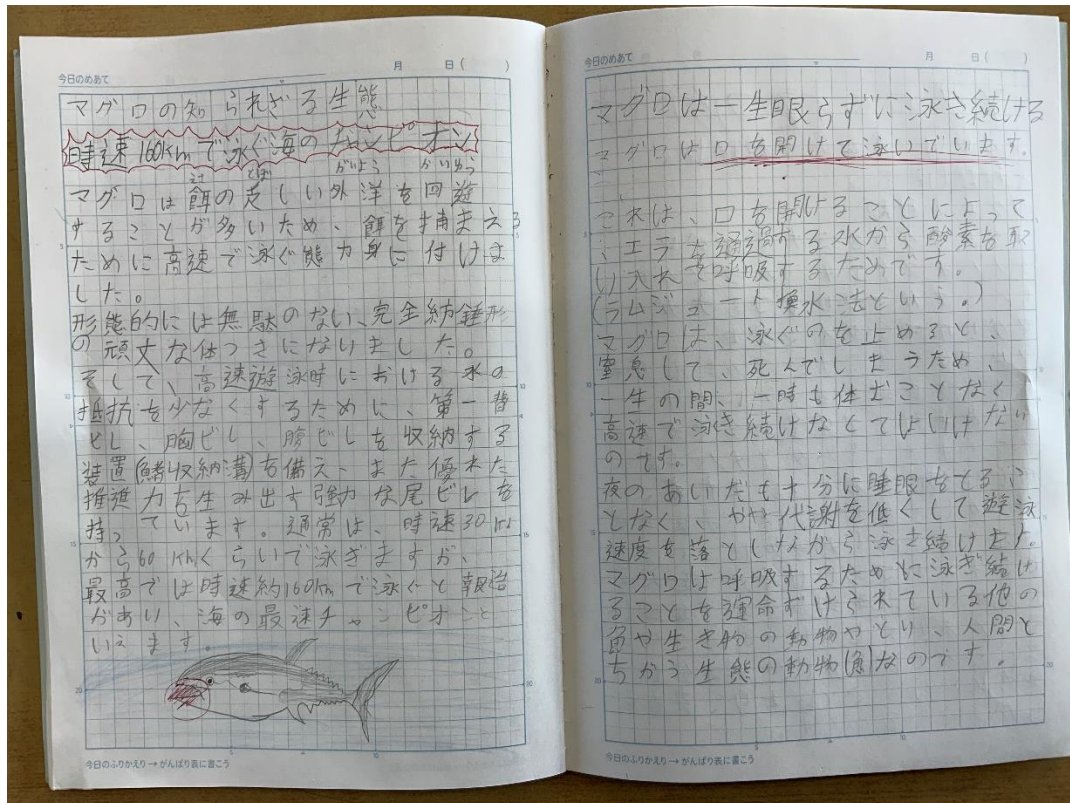 今日のめあて
月 日( )
マグロの知られざる生態
時速160kmで泳ぐ海のチャンピオン
えさ とぼ がいよう かいゆう
マグロは餌の乏しい外洋を回遊
することが多いため、餌を捕まえる
ために高速で泳ぐ態力身に付けま
した。
形態的には無駄のない、完全紡錘形
の頑丈な体つきになりました。
そして、高速遊泳時における水の
抵抗を少なくするために、第一背
ビレ、胸ビレ、腹ビレを収納する
装置(鰭収納溝)も備え、また優れた
推進力を生み出す強力な尾ビレを
持っています。通常は、時速30km
から60kmくらいで泳ぎますが、
最高では時速約160kmで泳ぐと報告
があり、海の最速チャンピオンと
いえます。
5
10
15
20
5
10
今日のふりかえり→がんばり表に書こう
今日のめあて
月 日( )
マグロは一生眠らずに泳き続ける
マグロは口を開けて泳いでいます。
これは、口を開けることによって
、エラを通過する水から酸素を取
り入れて呼吸するためです。
(ラムジュート換水法という。)
マグロは、泳ぐのを止めると、
窒息して、死んでしまうため、
一生の間、一時も体だことなく
高速で泳き続けなくてはいけない
のです。
夜のあいだも十分に睡眠をとるこ
となく、やや代謝を低くして遊泳
速度を落としながら泳き続けます。
マグロは呼吸するために泳ぎ続け
ることを運命ずけられている他の
魚や生き物の動物やとり、人間と
ちがう生態の動物(魚)なのです。
今日のふりかえり→がんばり表に書こう